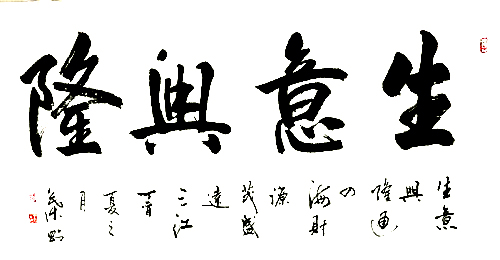 生意興隆
生意
興
隆通
四
海財
源
茂盛
達
三江
丁酉
夏之
月